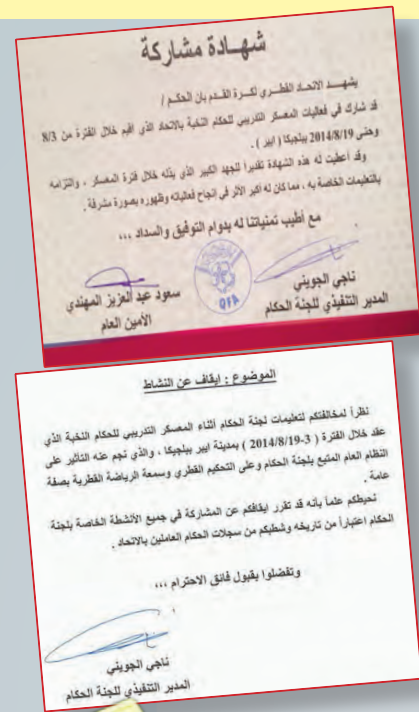 شهـادة مشاركة
يشهـــد الاتحـاد القطـري لكـرة القـدم بان الحكـم /
قد شارك في فعاليات المعسكر التدريبي للحكام النخبة بالاتحاد الذي أقيم خلال الفترة من 8/3
وحتى 2014/8/19 ببلجيكا ( ايبر ) .
وقد أعطيت له هذه الشهادة تقديراً للجهد الكبير الذي بذله خلال فترة المعسكر ، والتزامه
بالتعليمات الخاصة به ، مما كان له أكبر الأثر في إنجاح فعالياته وظهوره بصورة مشرفة .
مع أطيب تمنياتنا له بدوام التوفيق والسداد ،،،
ناجي الجويني
المدير التنفيذي للجنة الحكام
سعود عبد العزيز المهندي
الأمين العام
QFA
الموضوع : ايقاف عن النشاط
نظراً لمخالفتكم لتعليمات لجنة الحكام أثناء المعسكر التدريبي للحكام النخبة الذي
عقد خلال الفترة ( 3-2014/8/19 ) بمدينة ايبر ببلجيكا ، والذي نجم عنه التأثير على
النظام العام المتبع بلجنة الحكام وعلى التحكيم القطري وسمعة الرياضة القطرية بصفة
عامة .
نحيطكم علماً بأنه قد تقرر ايقافكم عن المشاركة في جميع الأنشطة الخاصة بلجنة
الحكام اعتباراً من تاريخه وشطبكم من سجلات الحكام العاملين بالاتحاد .
وتفضلوا بقبول فائق الاحترام ،،،
ناجي الجويني
المدير التنفيذي للجنة الحكام